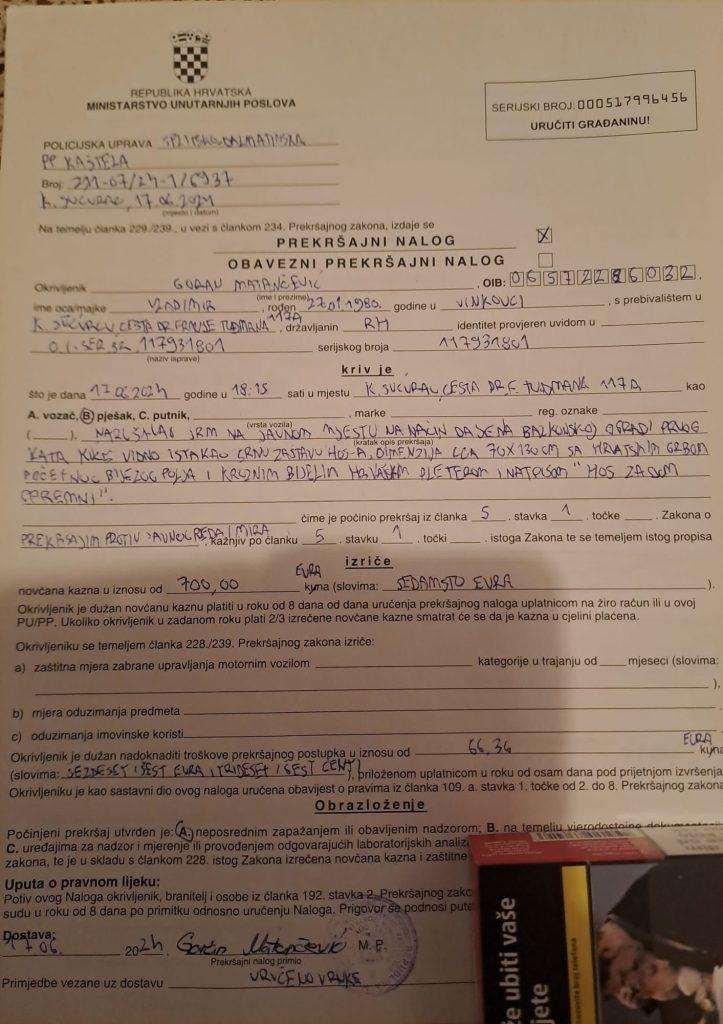 REPUBLIKA HRVATSKA
MINISTARSTVO UNUTARNJIH POSLOVA
SERIJSKI BROJ: 000517996456
URUČITI GRAĐANINU!
POLICIJSKA UPRAVA SPLITSKO-DALMATINSKA
PP KAŠTELA
Broj: 211-07/24-1/6937
K. SUĆURAC, 17.06.2024
(mjesto i datum)
Na temelju članka 229./239., u vezi s člankom 234. Prekršajnog zakona, izdaje se
PREKRŠAJNI NALOG X
OBAVEZNI PREKRŠAJNI NALOG
Okrivljenik GORAN MATANČEVIĆ, OIB:
(ime i prezime)
ime oca/majke VLADIMIR, rođen 27.01.1980. godine u VINKOVCI, s prebivalištem u
K. SUĆURAC, CESTA DR. FRANJE TUĐMANA 117A, državljanin RH identitet provjeren uvidom u
O.I. SER. BR. 117931801 serijskog broja 117931801
(naziv isprave)
kriv je
što je dana 17.06.2024 godine u 18:15 sati u mjestu K. SUĆURAC, CESTA DR. F. TUĐMANA 117A kao
A. vozač, B. pješak, C. putnik, , marke reg. oznake
(vrsta vozila)
( ). NA JAVNOM MJESTU NA NAČIN DA JE NA BALKONSKOJ OGRADI PRVOG
(kratak opis prekršaja)
KATA KUĆE VIDNO ISTAKAO CRNU ZASTAVU HOS-A, DIMENZIJA CCA 70X130 CM SA HRVATSKIM GRBOM
POČETNOG BIJELOG POLJA I KRUŽNIM BIJELIM PLETEROM I NATPISOM "HOS ZA DOM
SPREMNI".
čime je počinio prekršaj iz članka 5, stavka 1, točke . Zakona o
PREKRŠAJIMA PROTIV JAVNOG REDA I MIRA, kažnjiv po članku 5, stavku 1, točki . istoga Zakona te se temeljem istog propisa
izriče
novčana kazna u iznosu od 700,00 EURA kuna (slovima: SEDAMSTO EURA ).
Okrivljenik je dužan novčanu kaznu platiti u roku od 8 dana od dana uručenja prekršajnog naloga uplatnicom na žiro račun ili u ovoj
PU/PP. Ukoliko okrivljenik u zadanom roku plati 2/3 izrečene novčane kazne smatrat će se da je kazna u cjelini plaćena.
Okrivljeniku se temeljem članka 228./239. Prekršajnog zakona izriče:
a) zaštitna mjera zabrane upravljanja motornim vozilom kategorije u trajanju od mjeseci (slovima:
),
b) mjera oduzimanja predmeta
c) oduzimanja imovinske koristi
Okrivljenik je dužan nadoknaditi troškove prekršajnog postupka u iznosu od 66,36 EURA kuna
(slovima: ŠEZDESET I ŠEST EURA I TRIDESET I ŠEST CENTI), priloženom uplatnicom u roku od osam dana pod prijetnjom izvršenja
Okrivljeniku je kao sastavni dio ovog naloga uručena obavijest o pravima iz članka 109. a. stavka 1. točke od 2. do 8. Prekršajnog zakona
Obrazloženje
Počinjeni prekršaj utvrđen je: A. neposrednim zapažanjem ili obavljenim nadzorom; B. na temelju vjerodostojne
C. uređajima za nadzor i mjerenje ili provođenjem odgovarajućih laboratorijskih
zakona, te je u skladu s člankom 228. istog Zakona izrečena novčana kazna i zaštitne
Uputa o pravnom lijeku:
Potiv ovog Naloga okrivljenik, branitelj i osobe iz članka 192. stavka 2. Prekršajnog
sudu u roku od 8 dana po primitku odnosno uručenju Naloga. Prigovor se podnosi
Dostava:
17.06. 2024 Goran Matančević M. P.
Prekršajni nalog primio
Primjedbe vezane uz dostavu URUČENO U RUKE
že ubiti vaše
jete